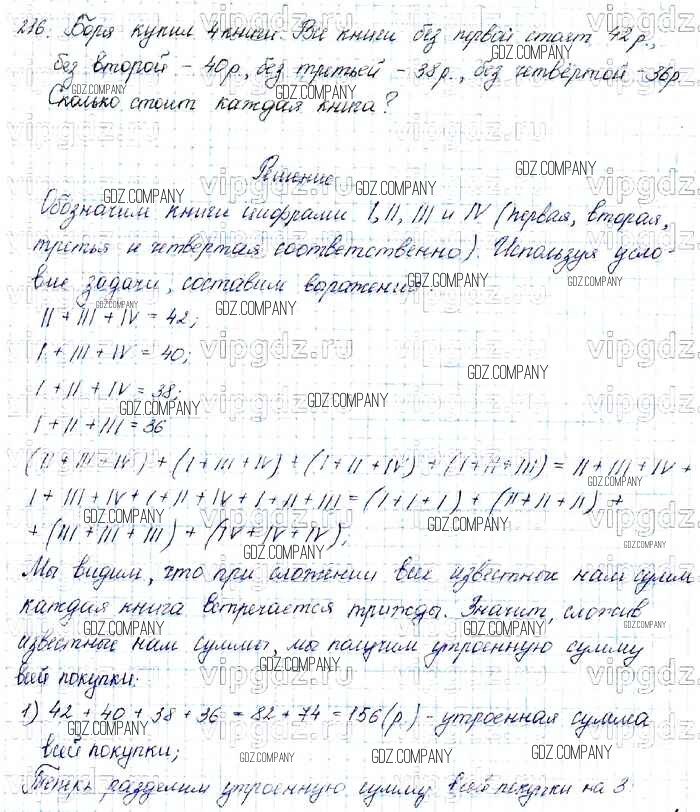 236. Боря купил 4 книги. Все книги без первой стоят 42 р.,
без второй - 40р., без третьей - 38р., без четвёртой - 36р
Сколько стоит каждая книга?
Решение
Обозначим книги цифрами I, II, III и IV (первая, вторая,
третья и четвертая соответственно). Используя усло-
вие задачи, составим выражения:
II + III + IV = 42;
I + III + IV = 40;
I + II + IV = 38;
I + II + III = 36
(II + III + IV) + (I + III + IV) + (I + II + IV) + (I + II + III) = II + III + IV +
I + III + IV + I + II + IV + I + II + III = (I + I + I) + (II + II + II) +
+ (III + III + III) + (IV + IV + IV);
Мы видим, что при сложении всех известных нам сумм
каждая книга встречается трижды. Значит, сложив
известные нам суммы, мы получим утроенную сумму
всей покупки:
1) 42 + 40 + 38 + 36 = 82 + 74 = 156 (р.) - утроенная сумма
всей покупки;
Теперь разделим утроенную сумму всей покупки на 3:
GDZ.COMPANY
vipgdz.ru